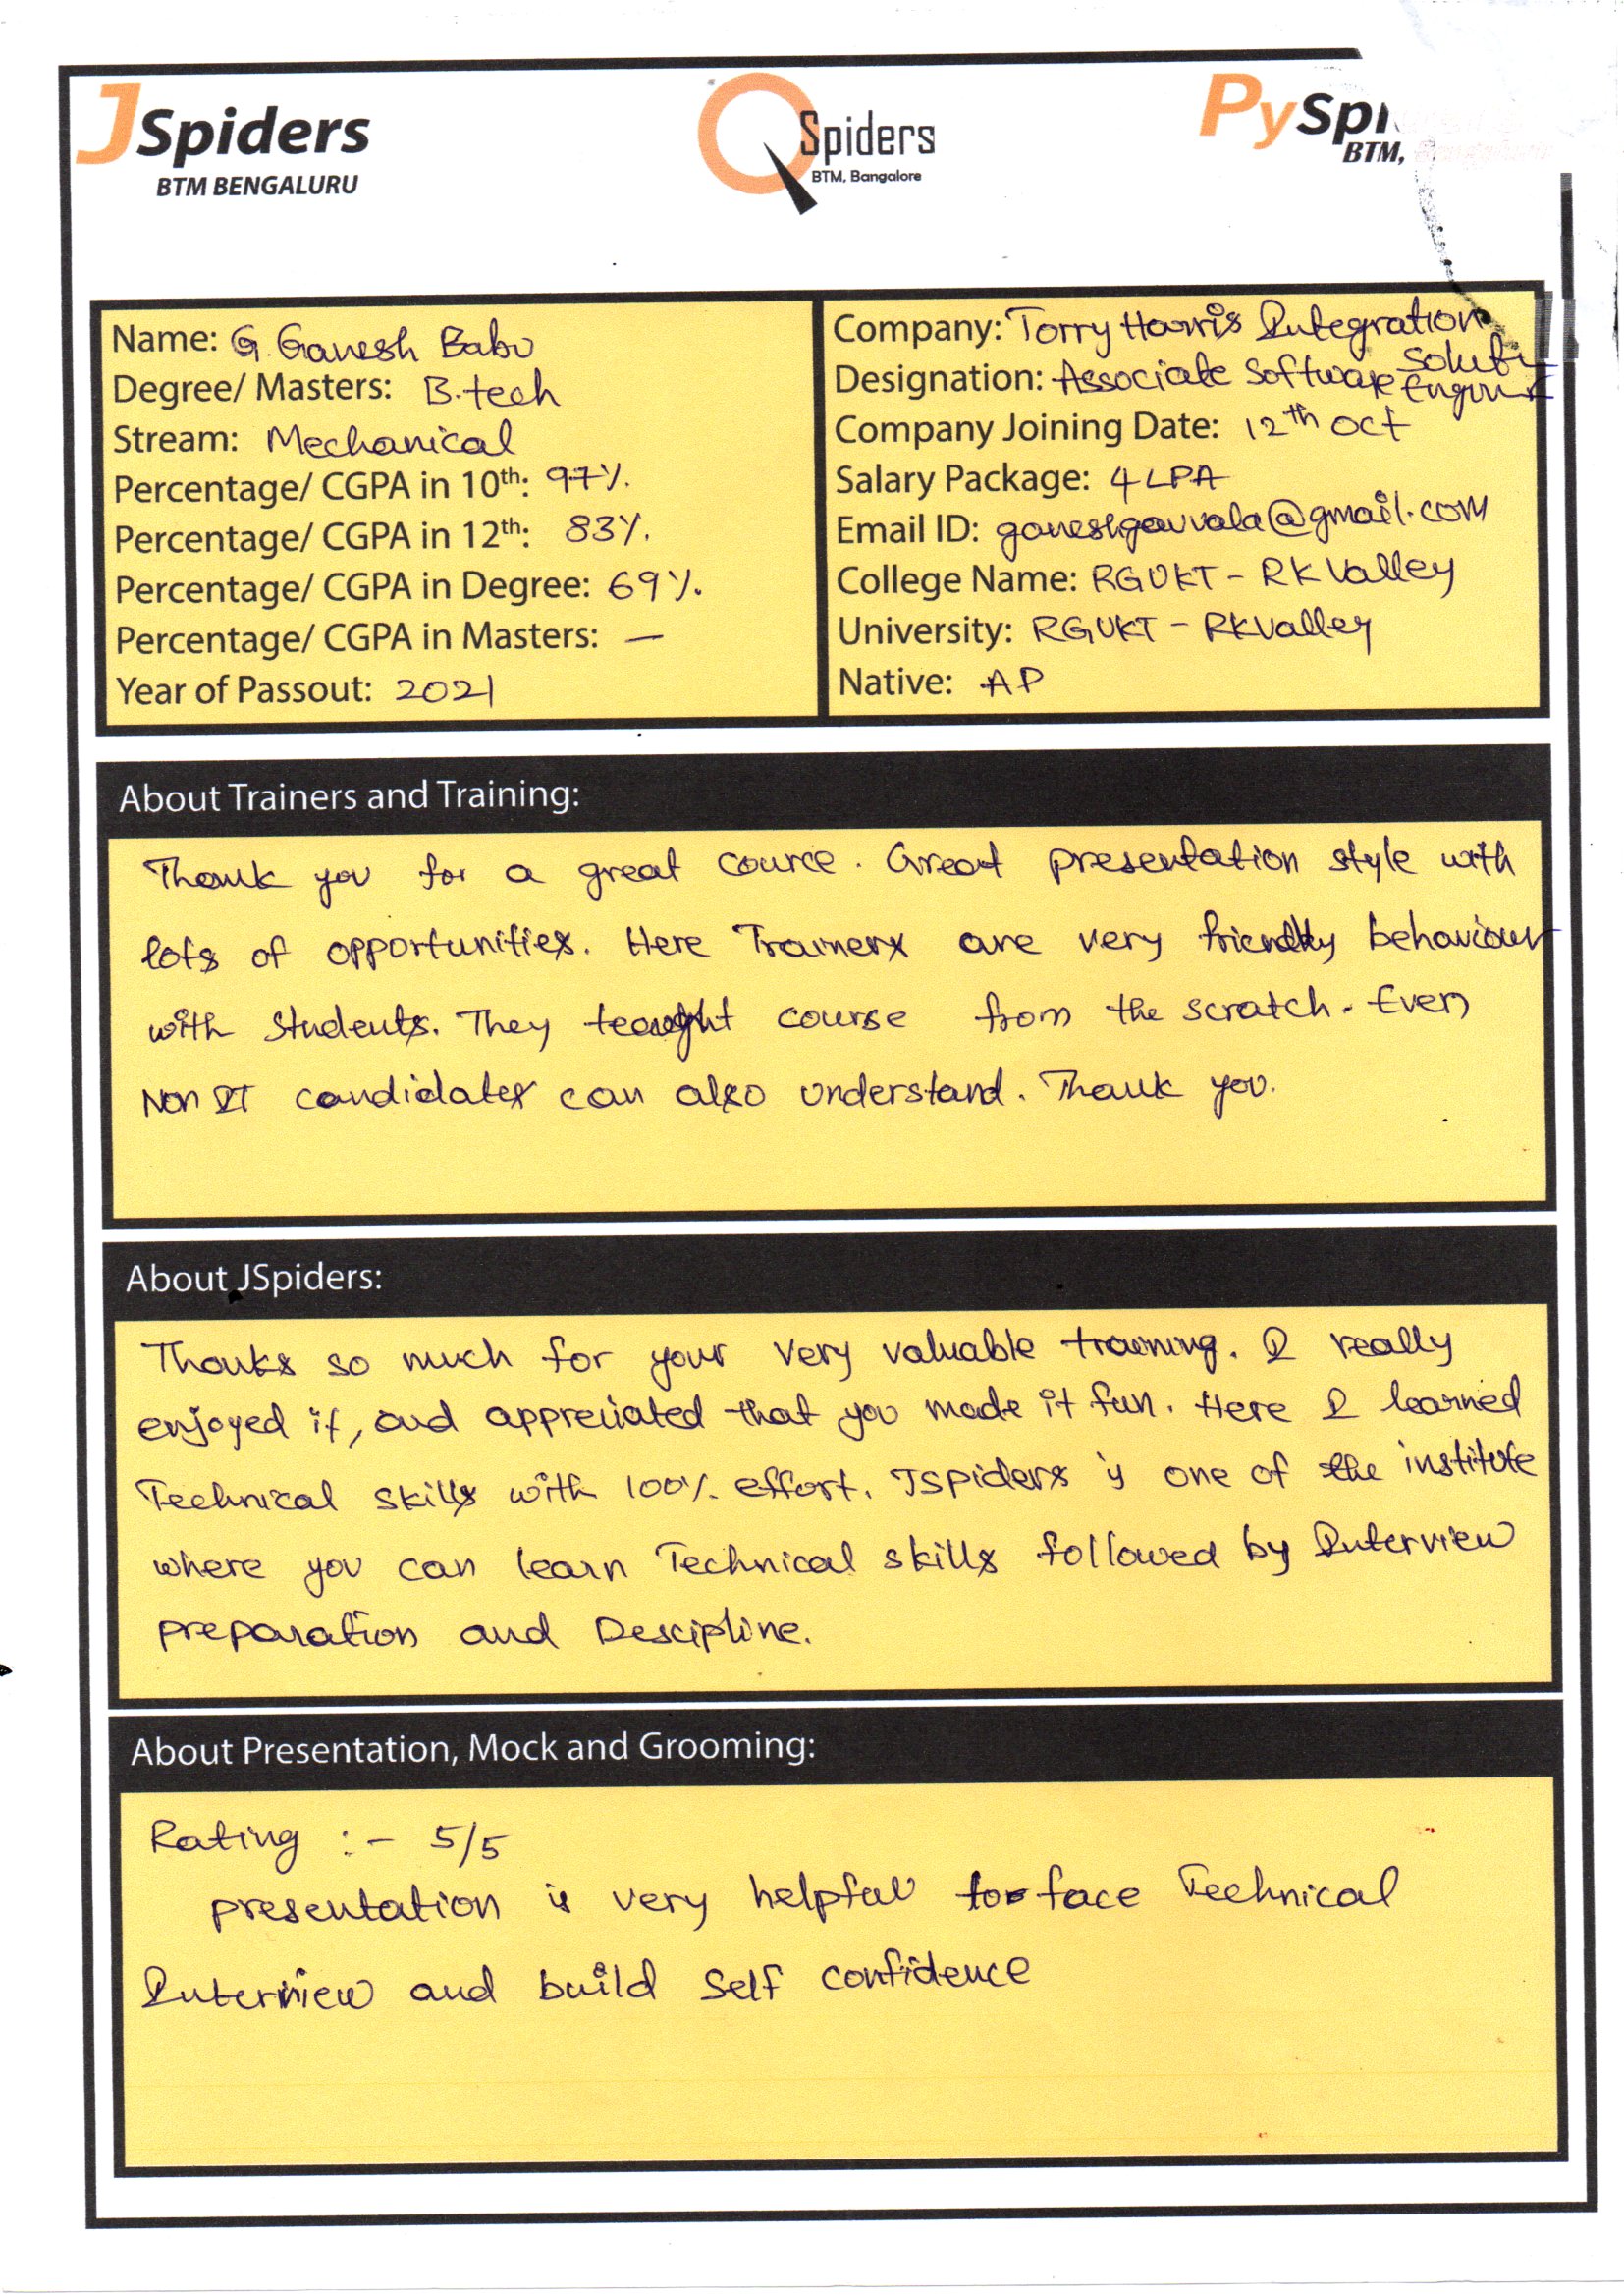 JSpiders
BTM BENGALURU
QSpiders
BTM, Bangalore
PySpi
BTM,
Name: G. Ganesh Babu
Degree/ Masters: B.tech
Stream: Mechanical
Percentage/ CGPA in 10th: 97%.
Percentage/ CGPA in 12th: 83%.
Percentage/ CGPA in Degree: 69%.
Percentage/ CGPA in Masters: —
Year of Passout: 2021
Company: Torry Harris Integration
Soluti
Designation: Associate Software Engineer
Company Joining Date: 12th Oct
Salary Package: 4 LPA
Email ID: @gmail.com
College Name: RGUKT - RK Valley
University: RGUKT - RKValley
Native: AP
About Trainers and Training:
Thank you for a great cource. Great presentation style with
lots of opportunities. Here Trainers are very friendly behaviour
with students. They taught course from the scratch. Even
Non IT candidates can also understand. Thank you.
About JSpiders:
Thanks so much for your very valuable training. I really
enjoyed it, and appreciated that you made it fun. Here I learned
Technical skills with 100% effort. JSpiders is one of the institute
where you can learn Technical skills followed by Interview
preparation and Descipline.
About Presentation, Mock and Grooming:
Rating :- 5/5
presentation is very helpful to face Technical
Interview and build Self confidence